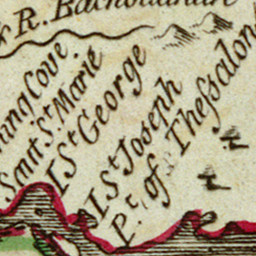 R. Bachouanan
Cove.
Sant St. Marie
I St. George
I St. Joseph
Pt. of Thessalon